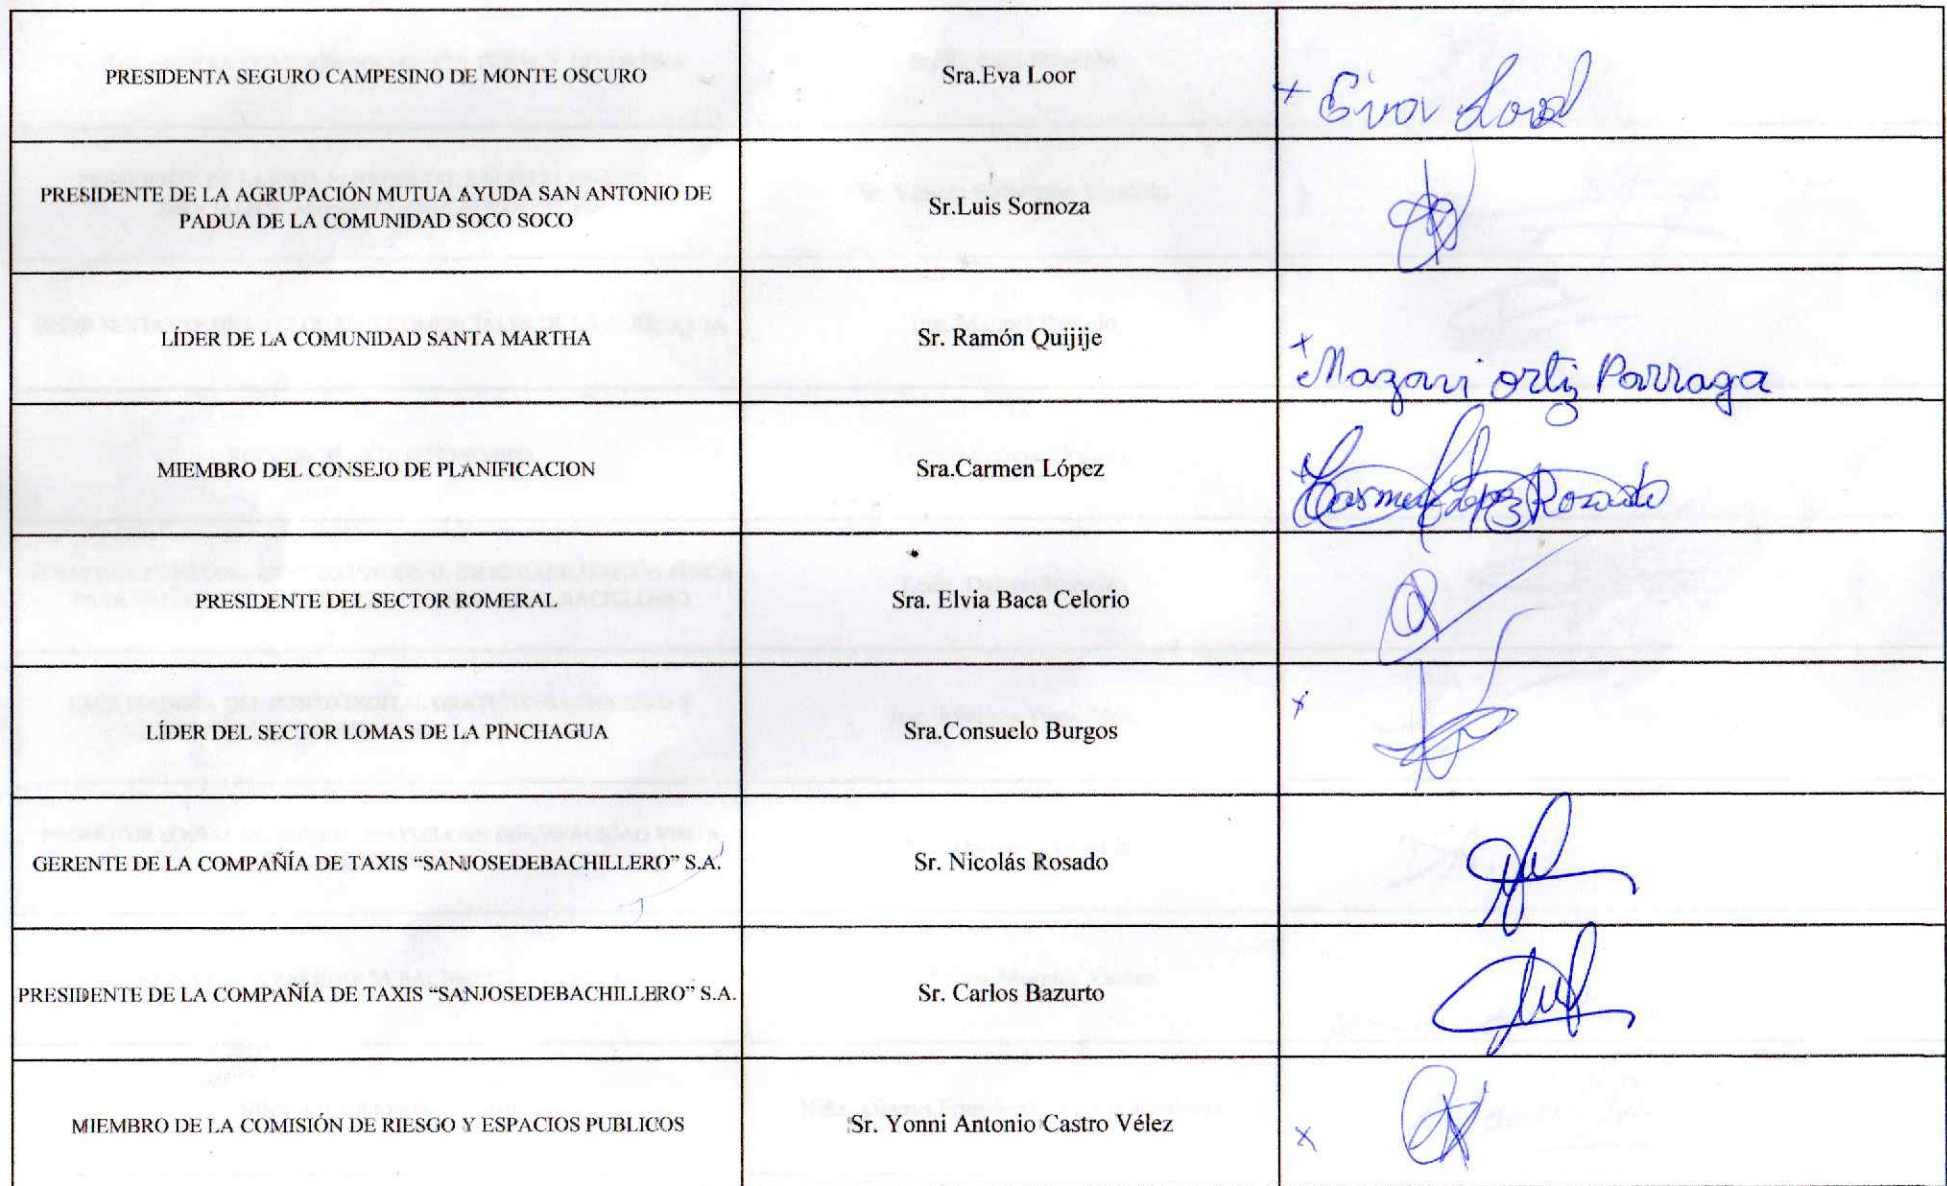 PRESIDENTA SEGURO CAMPESINO DE MONTE OSCURO
Sra.Eva Loor
+ Eva Loor
PRESIDENTE DE LA AGRUPACIÓN MUTUA AYUDA SAN ANTONIO DE
PADUA DE LA COMUNIDAD SOCO SOCO
Sr.Luis Sornoza
LÍDER DE LA COMUNIDAD SANTA MARTHA
Sr. Ramón Quijije
+ Mazari ortiz Parraga
MIEMBRO DEL CONSEJO DE PLANIFICACION
Sra.Carmen López
+ Carmen López Rosado
PRESIDENTE DEL SECTOR ROMERAL
Sra. Elvia Baca Celorio
LÍDER DEL SECTOR LOMAS DE LA PINCHAGUA
Sra.Consuelo Burgos
x
GERENTE DE LA COMPAÑÍA DE TAXIS “SANJOSEDEBACHILLERO” S.A.
Sr. Nicolás Rosado
PRESIDENTE DE LA COMPAÑÍA DE TAXIS “SANJOSEDEBACHILLERO” S.A.
Sr. Carlos Bazurto
MIEMBRO DE LA COMISIÓN DE RIESGO Y ESPACIOS PUBLICOS
Sr. Yonni Antonio Castro Vélez
x